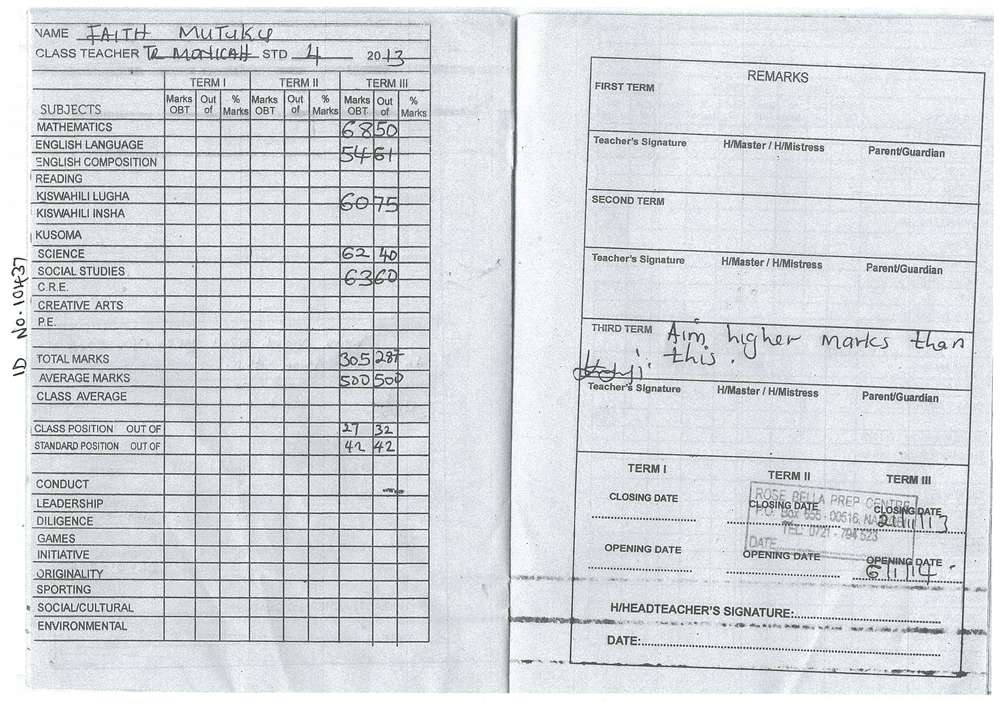 NAME FAITH MUTUKU
CLASS TEACHER TR MONICAH STD 4 2013
TERM I TERM II TERM III
SUBJECTS Marks OBT Out of % Marks Marks OBT Out of % Marks Marks OBT Out of % Marks
MATHEMATICS 68 50
ENGLISH LANGUAGE
ENGLISH COMPOSITION 54 61
READING
KISWAHILI LUGHA 60 75
KISWAHILI INSHA
KUSOMA
SCIENCE 62 40
SOCIAL STUDIES 63 60
C.R.E.
CREATIVE ARTS
P.E.
TOTAL MARKS 305 287
AVERAGE MARKS 500 500
CLASS AVERAGE
CLASS POSITION OUT OF 27 32
STANDARD POSITION OUT OF 42 42
CONDUCT
LEADERSHIP
DILIGENCE
GAMES
INITIATIVE
ORIGINALITY
SPORTING
SOCIAL/CULTURAL
ENVIRONMENTAL
ID No. 10437
REMARKS
FIRST TERM
Teacher's Signature H/Master / H/Mistress Parent/Guardian
SECOND TERM
Teacher's Signature H/Master / H/Mistress Parent/Guardian
THIRD TERM Aim higher marks than
this.
Teacher's Signature H/Master / H/Mistress Parent/Guardian
TERM I TERM II TERM III
CLOSING DATE CLOSING DATE CLOSING DATE
ROSE BELLA PREP CENTRE
P.O. Box 655 - 00516,
TEL: 0721 - 794 523
DATE
21/11/13
OPENING DATE OPENING DATE OPENING DATE
6/1/14
H/HEADTEACHER'S SIGNATURE:
DATE: